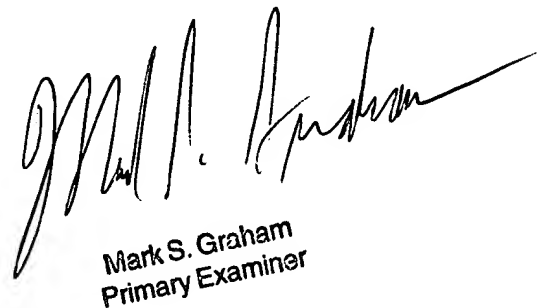 Mark S. Graham
Mark S. Graham
Primary Examiner